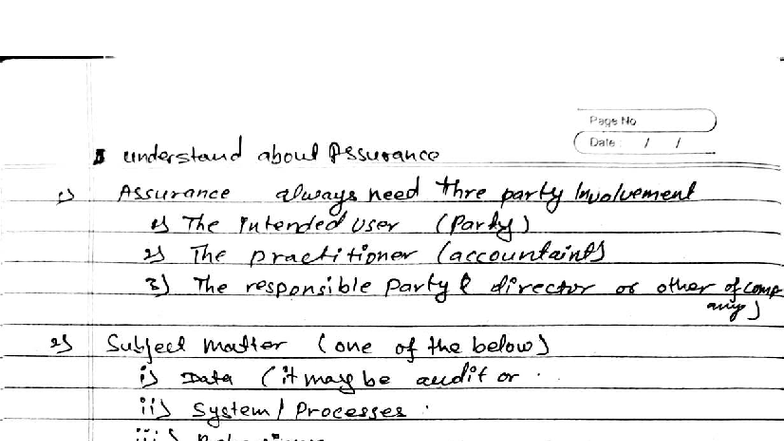 Page No
Date : / /
understand about Assurance
1) Assurance always need thre party involvement
1) The intended user (Party)
2) The practitioner (accountaint)
3) The responsible party ( director or other of comp
any)
2) Subject matter (one of the below)
i) Data (it may be audit or .
ii) System / Processes :
iii)